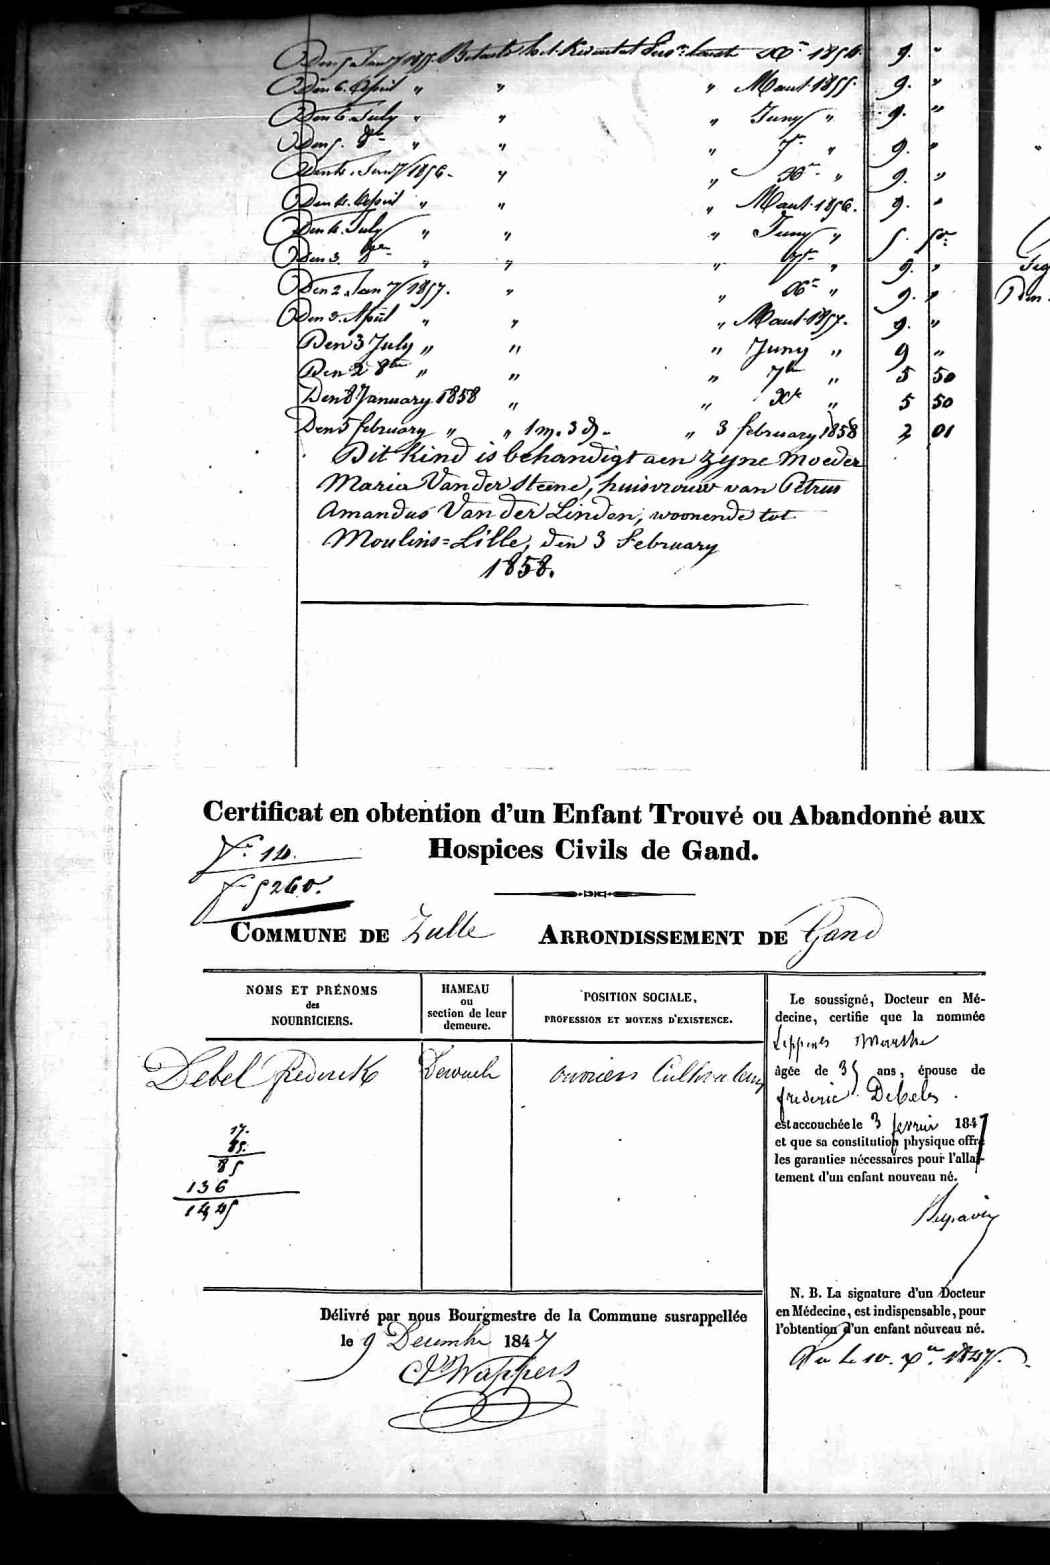 Den 5 Jany 1855. Betaelt het Kwartaal xbr 1854 9. "
Den 6. April " " " Maart 1855. 9. "
Den 6 July " " " Juny " 9. "
Den 5. 8br " " " 7br " 9. "
Den 4. Jany 1856. " " Xbr " 9. "
Den 4. April " " " Maart 1856. 9. "
Den 4. July " " " Juny " 5. 50.
Den 3. 8bre " " " 7br " 9. "
Den 2 Jany 1857. " " Xbr " 9. "
Den 3. April " " " Maart 1857. 9. "
Den 3 July " " " Juny " 9 "
Den 2 8bre " " " 7br " 5 50
Den 8 January 1858 " " Xbr " 5 50
Den 5 february " " 1 m. 3 d. " 3 february 1858 2 01
Dit Kind is behandigt aen zyne Moeder
Maria Van der Steene, huisvrouw van Petrus
Amandus Van der Linden, woonende tot
Moulins=Lille, den 3 february
1858.
Certificat en obtention d'un Enfant Trouvé ou Abandonné aux
Hospices Civils de Gand.
14.
5260.
COMMUNE DE Zulte ARRONDISSEMENT DE Gand
NOMS ET PRÉNOMS
des
NOURRICIERS.
HAMEAU
ou
section de leur
demeure.
POSITION SOCIALE,
PROFESSION ET MOYENS D'EXISTENCE.
Debel frederik
ouvriers Cultivateurs
17.
85.
85
136
1445
Le soussigné, Docteur en Mé-
decine, certifie que la nommée
Leppens
âgée de 35 ans, épouse de
frederic Debels.
est accouchée le 3 fevrier 1847
et que sa constitution physique offre
les garanties nécessaires pour l'allai-
tement d'un enfant nouveau né.
N. B. La signature d'un Docteur
en Médecine, est indispensable, pour
l'obtention d'un enfant nouveau né.
Vu le 10. Xbre 1847.
Délivré par nous Bourgmestre de la Commune susrappellée
le 9 Decembre 1847
Wappers